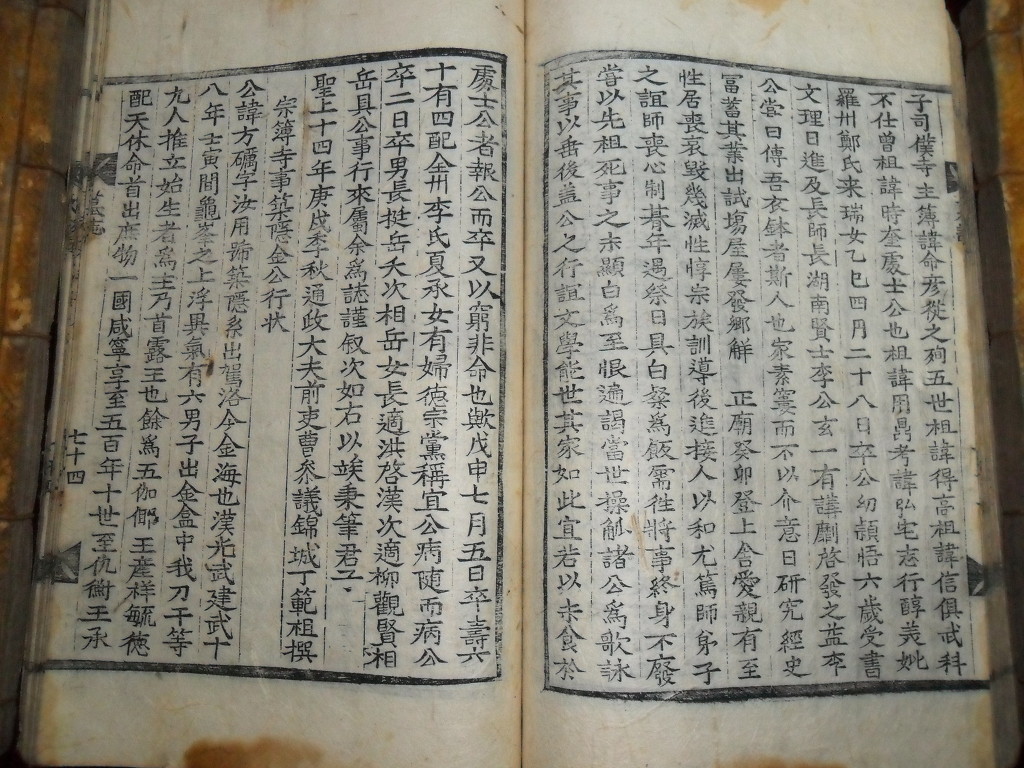 子司僕寺主簿諱命彦從之殉五世祖諱得高祖諱信俱武科
不仕曾祖諱時奎處士公也祖諱用卨考諱弘宅志行醇美妣
羅州鄭氏來瑞女乙巳四月二十八日卒公幼穎悟六歲受書
文理日進及長師長湖南賢士李公玄一有講劘啓發之益李
公嘗曰傳吾衣鉢者斯人也家素窶而不以介意日研究經史
富蓄其業出試塲屋屢發鄉解 正廟癸卯登上舍愛親有至
性居喪哀毀幾滅性惇宗族訓導後進接人以和尤篤師弟子
之誼師喪心制朞年遇祭日具白粲爲飯需徃將事終身不廢
嘗以先祖死事之未顯白爲至恨遍謁當世操觚諸公爲歌詠
其事以垂後盖公之行誼文學能世其家如此宜若以未食於
處士公者報公而卒又以窮非命也歟戊申七月五日卒壽六
十有四配金州李氏夏承女有婦德宗黨稱宜公病隨而病公
卒二日卒男長挺岳夭次相岳女長適洪啓漢次適柳觀賢相
岳具公事行來屬余爲誌謹叙次如右以竢秉筆君子
聖上十四年庚戌季秋通政大夫前吏曹參議錦城丁範祖撰
宗簿寺事築隱金公行狀
公諱方礪字汝用號築隱系出駕洛今金海也漢光武建武十
八年壬寅間龜峯之上浮異氣有六男子出金盒中我刀干等
九人推立始生者爲王乃首露王也餘爲五伽倻王產祥毓德
配天休命首出庶物一國咸寧享至五百年十世至仇衡王承
七十四